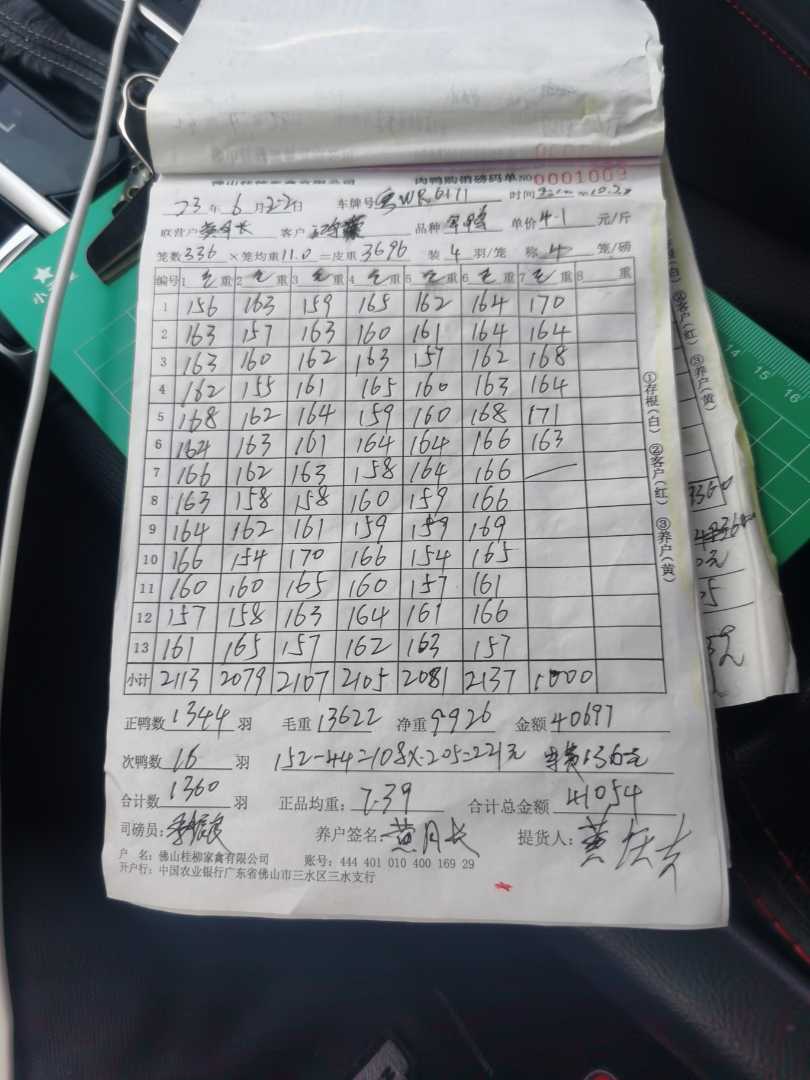 肉鸭购销磅码单 No 0001009
23年6月22日 车牌号 粤WR6171 时间
联营户 客户 品种 单价4.1元/斤
笼数336×笼均重11.0=皮重3696 装4羽/笼 称4笼/磅
编号 1 毛重 2 毛重 3 毛重 4 毛重 5 毛重 6 毛重 7 毛重 8 重
1 156 163 159 165 162 164 170
2 163 157 163 160 161 164 164
3 163 160 162 163 157 162 168
4 162 155 161 165 160 163 164
5 168 162 164 159 160 168 171
6 164 163 161 164 164 166 163
7 166 162 163 158 164 166 —
8 163 158 158 160 159 166
9 164 162 161 159 159 169
10 166 154 170 166 154 165
11 160 160 165 160 157 161
12 157 158 163 164 161 166
13 161 165 157 162 163 157
小计 2113 2079 2107 2105 2081 2137 1000
正鸭数1344羽 毛重13622 净重9926 金额40697
次鸭数16羽 152-44=108×2.05=221元 136元
合计数1360羽 正品均重:7.39 合计总金额41054
司磅员: 养户签名:黄月长 提货人:黄
户 名:佛山桂柳家禽有限公司 账号:444 401 010 400 169 29
开户行:中国农业银行广东省佛山市三水区三水支行
①存根(白) ②客户(红) ③养户(黄)
客户(红) ③养户(黄)
14 15 16
小